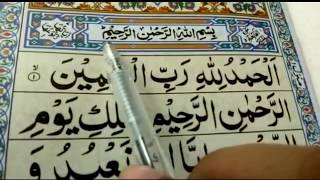 بِسْمِ اللهِ الرَّحْمٰنِ الرَّحِيْمِ
اَلْحَمْدُ لِلّٰهِ رَبِّ
الرَّحْمٰنِ الرَّحِيْمِ مٰلِكِ يَوْمِ
نَعْبُدُ وَ